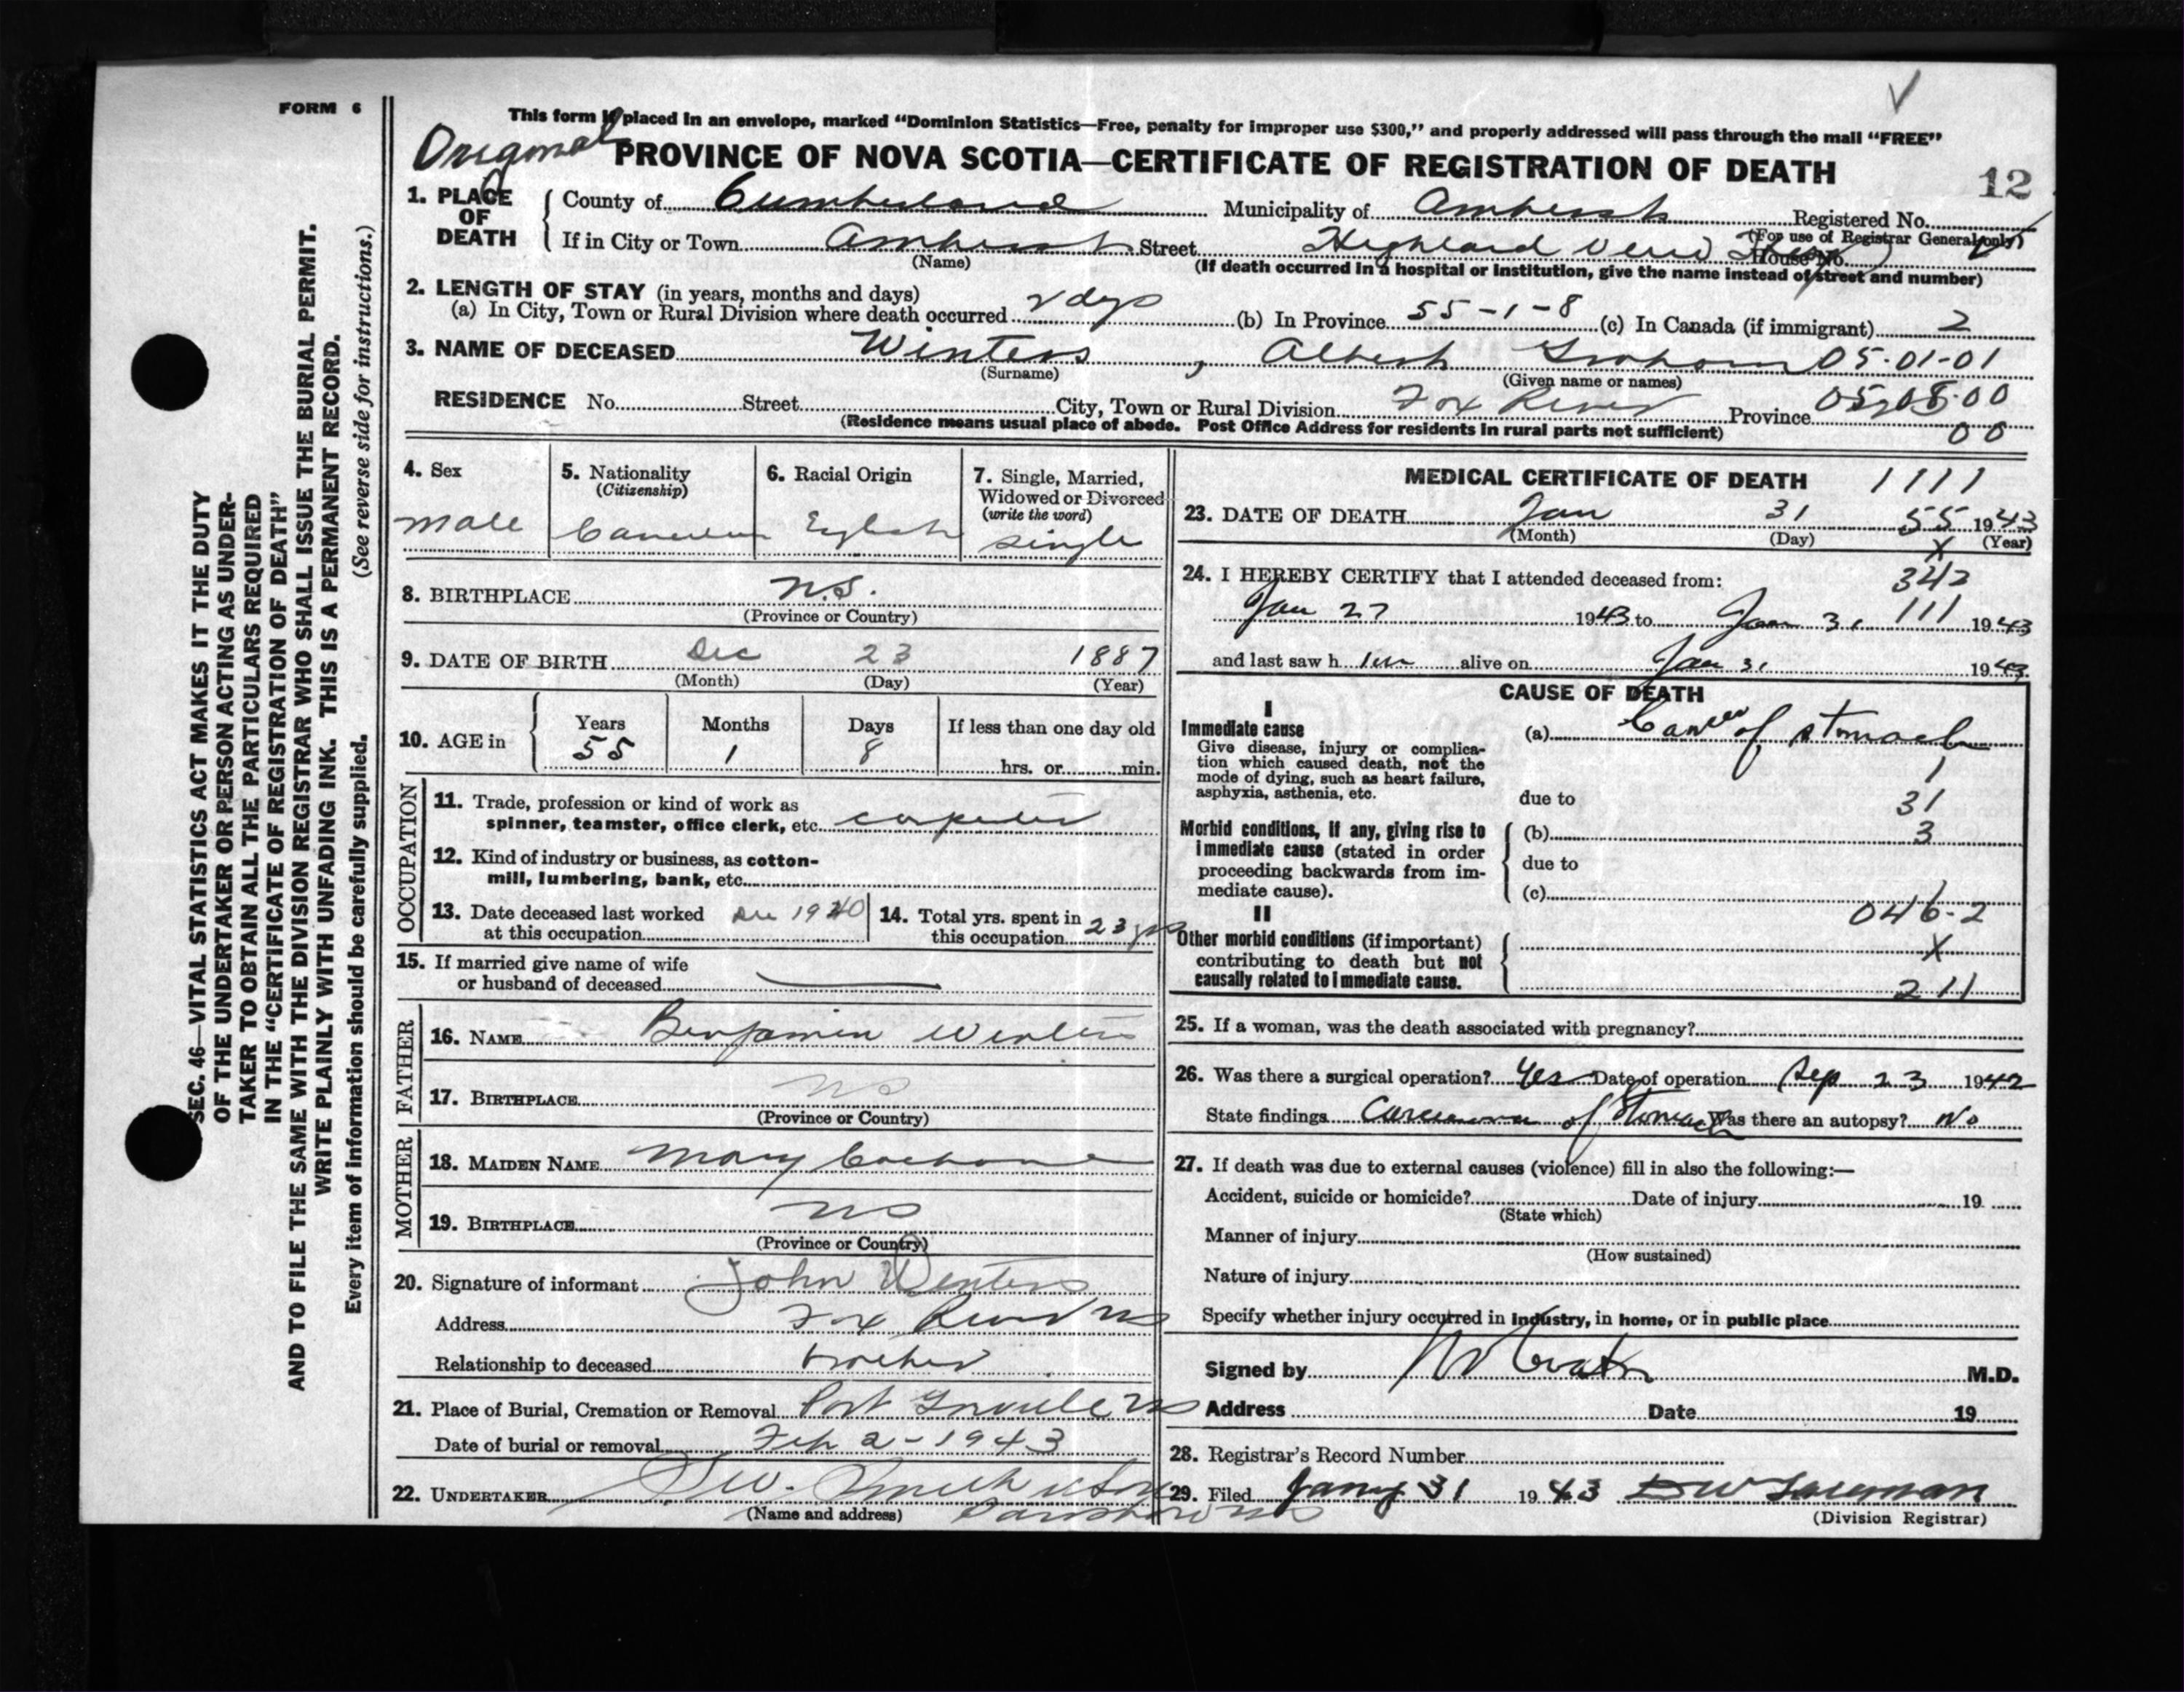 FORM 6
This form if placed in an envelope, marked “Dominion Statistics—Free, penalty for improper use $300,” and properly addressed will pass through the mail “FREE”
Original
PROVINCE OF NOVA SCOTIA—CERTIFICATE OF REGISTRATION OF DEATH
12
1. PLACE OF DEATH
County of Cumberland Municipality of Amherst Registered No.
(For use of Registrar General only)
If in City or Town Amherst Street Highland View House No.
(Name)
(If death occurred in a hospital or institution, give the name instead of street and number)
2. LENGTH OF STAY (in years, months and days)
(a) In City, Town or Rural Division where death occurred 2 days (b) In Province 55-1-8 (c) In Canada (if immigrant) 2
3. NAME OF DECEASED Winters, Albert Graham 05-01-01
(Surname) (Given name or names)
RESIDENCE No. Street City, Town or Rural Division Fox River Province
(Residence means usual place of abode. Post Office Address for residents in rural parts not sufficient) 00
4. Sex
male
5. Nationality
(Citizenship)
Canadian
6. Racial Origin
English
7. Single, Married,
Widowed or Divorced
(write the word)
single
8. BIRTHPLACE N.S.
(Province or Country)
9. DATE OF BIRTH Dec 23 1887
(Month) (Day) (Year)
10. AGE in
Years Months Days If less than one day old
55 1 8 hrs. or min.
OCCUPATION
11. Trade, profession or kind of work as
spinner, teamster, office clerk, etc. carpenter
12. Kind of industry or business, as cotton-
mill, lumbering, bank, etc.
13. Date deceased last worked
at this occupation Dec 1940
14. Total yrs. spent in
this occupation 23 yrs
15. If married give name of wife
or husband of deceased
FATHER
16. NAME Benjamin Winters
17. BIRTHPLACE NS
(Province or Country)
MOTHER
18. MAIDEN NAME Mary Cochrane
19. BIRTHPLACE NS
(Province or Country)
20. Signature of informant John Winters
Address Fox River NS
Relationship to deceased brother
21. Place of Burial, Cremation or Removal Port Greville NS
Date of burial or removal Feb 2-1943
22. UNDERTAKER Smith & Son
(Name and address) Parrsboro NS
MEDICAL CERTIFICATE OF DEATH 1111
23. DATE OF DEATH Jan 31 55 1943
(Month) (Day) X (Year)
24. I HEREBY CERTIFY that I attended deceased from: 342
Jan 27 1943 to Jan 31 111 1943
and last saw h im alive on Jan 31 1943
CAUSE OF DEATH
I
Immediate cause
Give disease, injury or complica-
tion which caused death, not the
mode of dying, such as heart failure,
asphyxia, asthenia, etc.
(a) Cancer of stomach
1
due to 31
Morbid conditions, if any, giving rise to
immediate cause (stated in order
proceeding backwards from im-
mediate cause).
(b) 3
due to
(c)
046-2
II
Other morbid conditions (if important)
contributing to death but not
causally related to immediate cause.
X
211
25. If a woman, was the death associated with pregnancy?
26. Was there a surgical operation? Yes Date of operation Sep 23 1942
State findings Carcinoma of Stomach Was there an autopsy? No
27. If death was due to external causes (violence) fill in also the following:—
Accident, suicide or homicide? Date of injury 19
(State which)
Manner of injury
(How sustained)
Nature of injury
Specify whether injury occurred in industry, in home, or in public place
Signed by M.D.
Address Date 19
28. Registrar’s Record Number
29. Filed Jany 31 1943
(Division Registrar)
SEC. 46—VITAL STATISTICS ACT MAKES IT THE DUTY
OF THE UNDERTAKER OR PERSON ACTING AS UNDER-
TAKER TO OBTAIN ALL THE PARTICULARS REQUIRED
IN THE “CERTIFICATE OF REGISTRATION OF DEATH”
AND TO FILE THE SAME WITH THE DIVISION REGISTRAR WHO SHALL ISSUE THE BURIAL PERMIT.
WRITE PLAINLY WITH UNFADING INK. THIS IS A PERMANENT RECORD.
Every item of information should be carefully supplied. (See reverse side for instructions.)